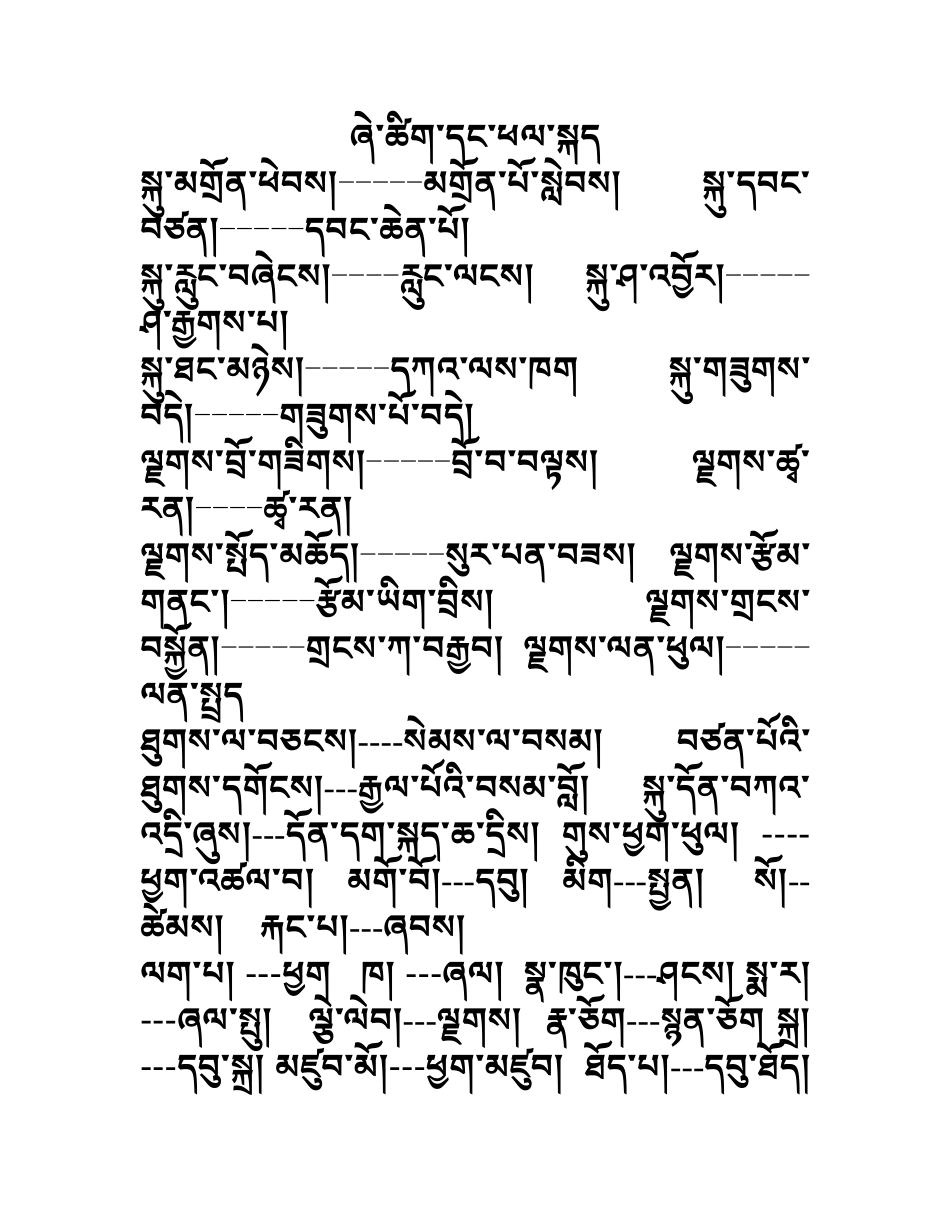 ཞེ་ཚིག་དང་ཕལ་སྐད
སྐུ་མགྲོན་ཕེབས།-----མགྲོན་པོ་སླེབས། སྐུ་དབང་
བཙན།-----དབང་ཆེན་པོ།
སྐུ་རླུང་བཞེངས།----རླུང་ལངས། སྐུ་ཤ་འབྱོར།-----
ཤ་རྒྱགས་པ།
སྐུ་ཐང་མཉེས།-----དཀའ་ལས་ཁག སྐུ་གཟུགས་
བདེ།-----གཟུགས་པོ་བདེ།
ལྗགས་བྲོ་གཟིགས།-----བྲོ་བ་བལྟས། ལྗགས་ཚྭ་
རན།----ཚྭ་རན།
ལྗགས་སྤོད་མཆོད།-----སུར་པན་བཟས། ལྗགས་རྩོམ་
གནང་།-----རྩོམ་ཡིག་བྲིས། ལྗགས་གྲངས་
བསྐྱོན།-----གྲངས་ཀ་བརྒྱབ། ལྗགས་ལན་ཕུལ།-----
ལན་སྤྲད
ཐུགས་ལ་བཅངས།----སེམས་ལ་བསམ། བཙན་པོའི་
ཐུགས་དགོངས།---རྒྱལ་པོའི་བསམ་བློ། སྐུ་དོན་བཀའ་
འདྲི་ཞུས།---དོན་དག་སྐད་ཆ་དྲིས། གུས་ཕྱག་ཕུལ། ----
ཕྱག་འཚལ་བ། མགོ་བོ།---དབུ། མིག---སྤྱན། སོ།--
ཚེམས། རྐང་པ།---ཞབས།
ལག་པ། ---ཕྱག ཁ། ---ཞལ། སྣ་ཁུང་།---ཤངས། སྨ་ར།
---ཞལ་སྤུ། ལྕེ་ལེབ།---ལྗགས། རྣ་ཅོག---སྙན་ཅོག སྐྲ།
---དབུ་སྐྲ། མཛུབ་མོ།---ཕྱག་མཛུབ། ཐོད་པ།---དབུ་ཐོད།